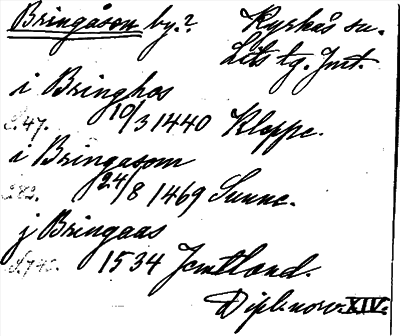 Bringåson by.? Kyrkås sn.
Lits tg. Jmt.
i Bringhos
S.47. 10/3 1440 Kloppe.
i Bringasom
S.82. 24/8 1469 Sunne.
j Bringaas
1534 Jemtland.
Dipl. norv. XIV.